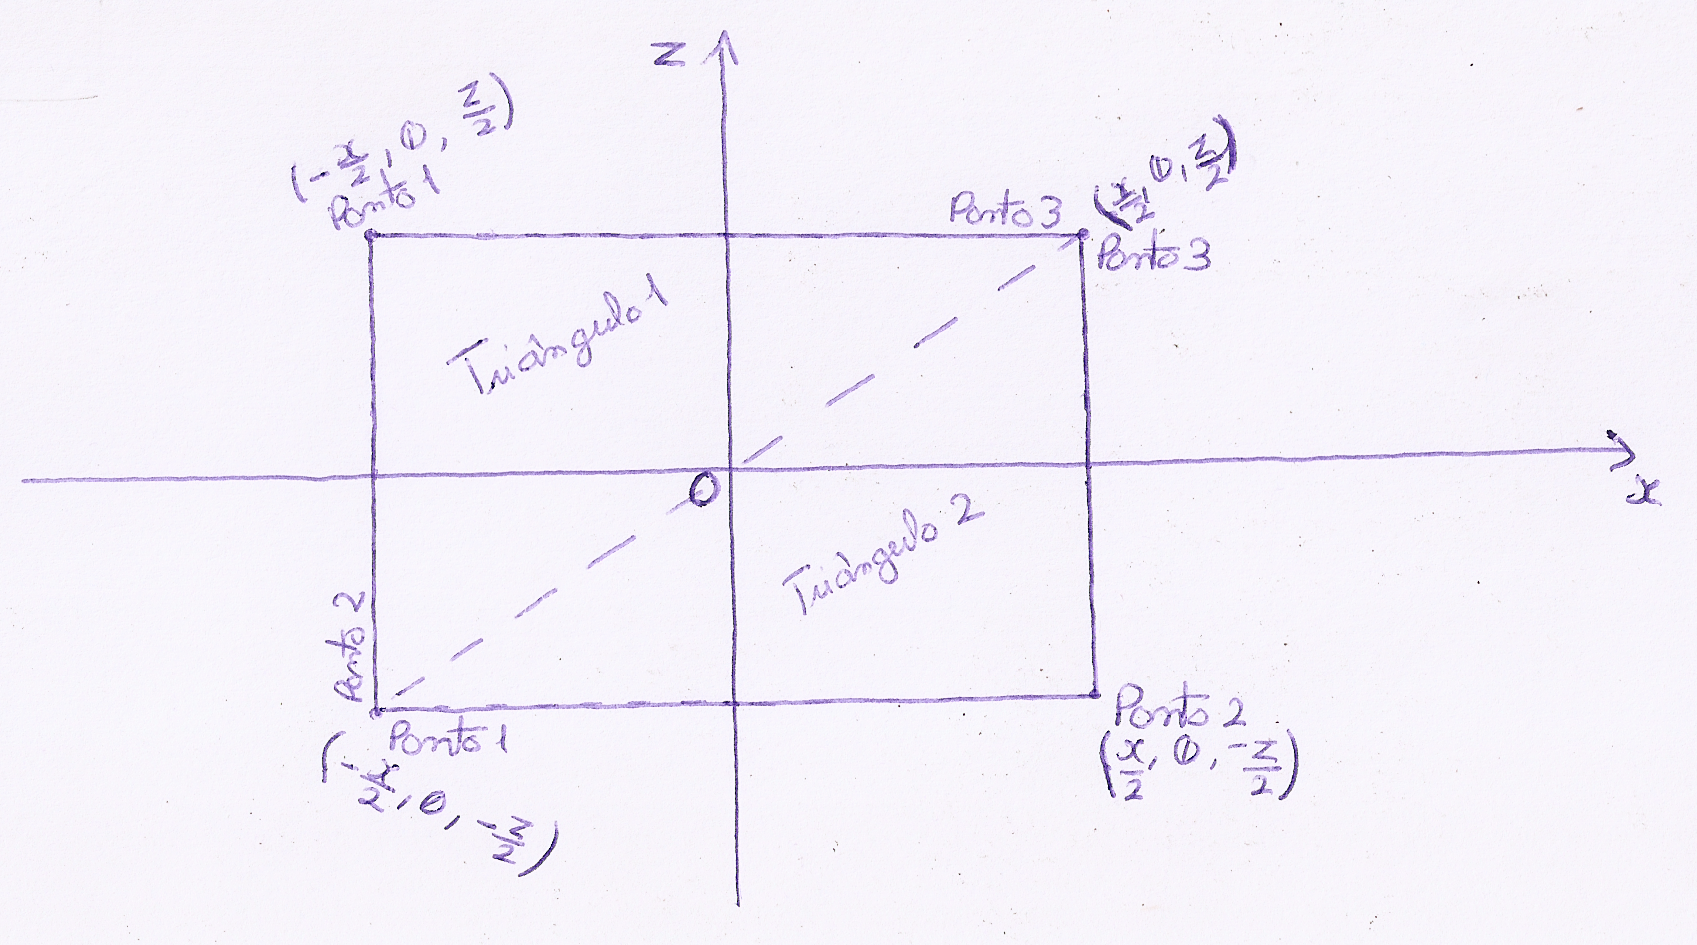 z
(-x/2, 0, z/2)
Ponto 1
Ponto 3
(x/2, 0, z/2)
Ponto 3
Triângulo 1
O
x
Triângulo 2
Ponto 2
Ponto 1
(-x/2, 0, -z/2)
Ponto 2
(x/2, 0, -z/2)